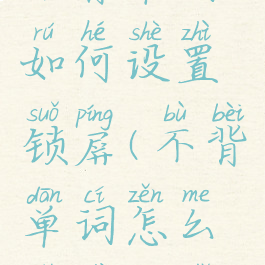 rú hé shè zhì
如何设置
suǒ píng bù bèi
锁屏(不背
dān cí zěn me
单词怎么